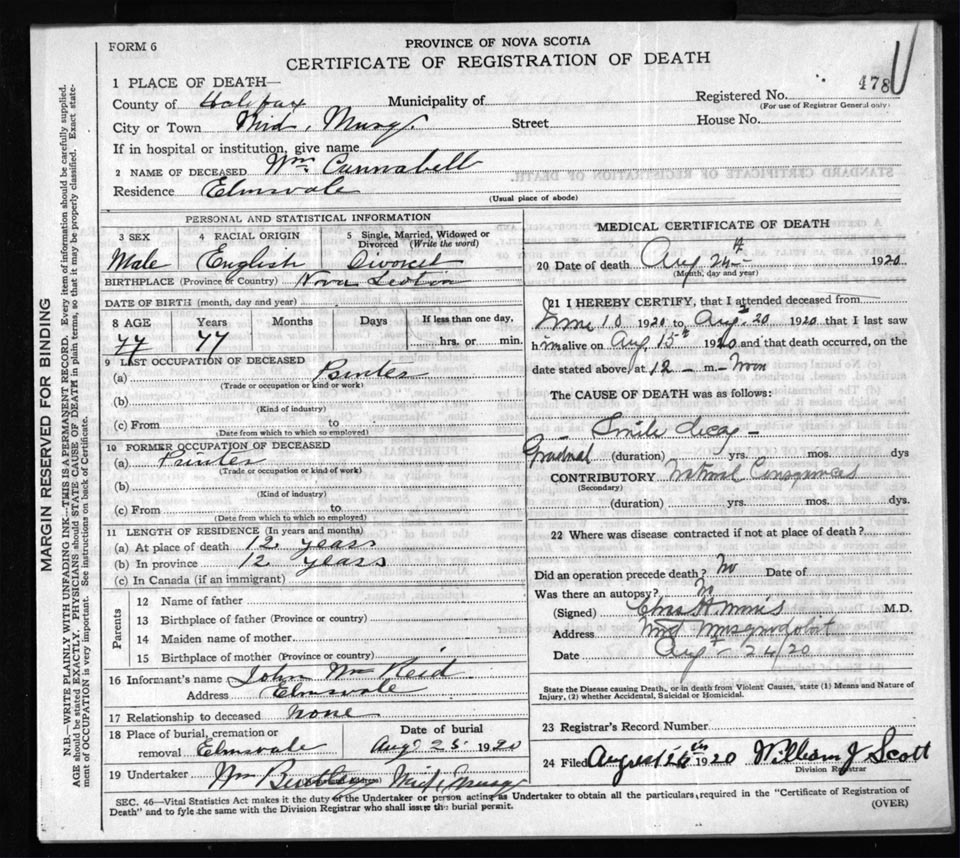 FORM 6
PROVINCE OF NOVA SCOTIA
CERTIFICATE OF REGISTRATION OF DEATH
1 PLACE OF DEATH—
Registered No. 478
(For use of Registrar General only)
County of Halifax Municipality of
City or Town Mid, Musq. Street House No.
If in hospital or institution, give name
2 NAME OF DECEASED Wm Cunnabell
Residence Elmsvale
(Usual place of abode)
PERSONAL AND STATISTICAL INFORMATION
3 SEX 4 RACIAL ORIGIN 5 Single, Married, Widowed or Divorced (Write the word)
Male English Divorced
BIRTHPLACE (Province or Country) Nova Scotia
DATE OF BIRTH (month, day and year)
8 AGE Years Months Days If less than one day,
77 77 hrs. or min.
9 LAST OCCUPATION OF DECEASED
(a) Printer
(Trade or occupation or kind or work)
(b)
(Kind of industry)
(c) From to
(Date from which to which so employed)
10 FORMER OCCUPATION OF DECEASED
(a) Printer
(Trade or occupation or kind of work)
(b)
(Kind of industry)
(c) From to
(Date from which to which so employed)
11 LENGTH OF RESIDENCE (In years and months)
(a) At place of death 12 years
(b) In province 12 years
(c) In Canada (if an immigrant)
Parents
12 Name of father
13 Birthplace of father (Province or country)
14 Maiden name of mother
15 Birthplace of mother (Province or country)
16 Informant's name John Wm Reid
Address Elmsvale
17 Relationship to deceased none
18 Place of burial, cremation or removal Elmsvale
Date of burial
Aug 25 1920
19 Undertaker Wm Mid, Musq
MEDICAL CERTIFICATE OF DEATH
20 Date of death Aug 24th 1920
(Month, day and year)
21 I HEREBY CERTIFY, that I attended deceased from
June 10 1920 to Aug 20 1920 that I last saw
him alive on Aug 15th 1920 and that death occurred, on the
date stated above, at 12 — m. — Noon
The CAUSE OF DEATH was as follows:
Senile decay —
Gradual (duration) yrs. mos. dys
CONTRIBUTORY Natural Consequences
(Secondary)
(duration) yrs. mos. dys.
22 Where was disease contracted if not at place of death?
Did an operation precede death? No Date of
Was there an autopsy? No
(Signed) Chas H Morris M.D.
Address Mid Musquodoboit
Date Aug 24/20
State the Disease causing Death, or in death from Violent Causes, state (1) Means and Nature of
Injury, (2) whether Accidental, Suicidal or Homicidal.
23 Registrar's Record Number
24 Filed August 26th 1920 William J Scott
Division Registrar
SEC. 46—Vital Statistics Act makes it the duty of the Undertaker or person acting as Undertaker to obtain all the particulars required in the "Certificate of Registration of
Death" and to fyle the same with the Division Registrar who shall issue the burial permit.
(OVER)
MARGIN RESERVED FOR BINDING
N.B.—WRITE PLAINLY WITH UNFADING INK—THIS IS A PERMANENT RECORD. Every item of information should be carefully supplied.
AGE should be stated EXACTLY. PHYSICIANS should STATE CAUSE OF DEATH in plain terms, so that it may be properly classified. Exact state-
ment of OCCUPATION is very important. See instructions on back of Certificate.